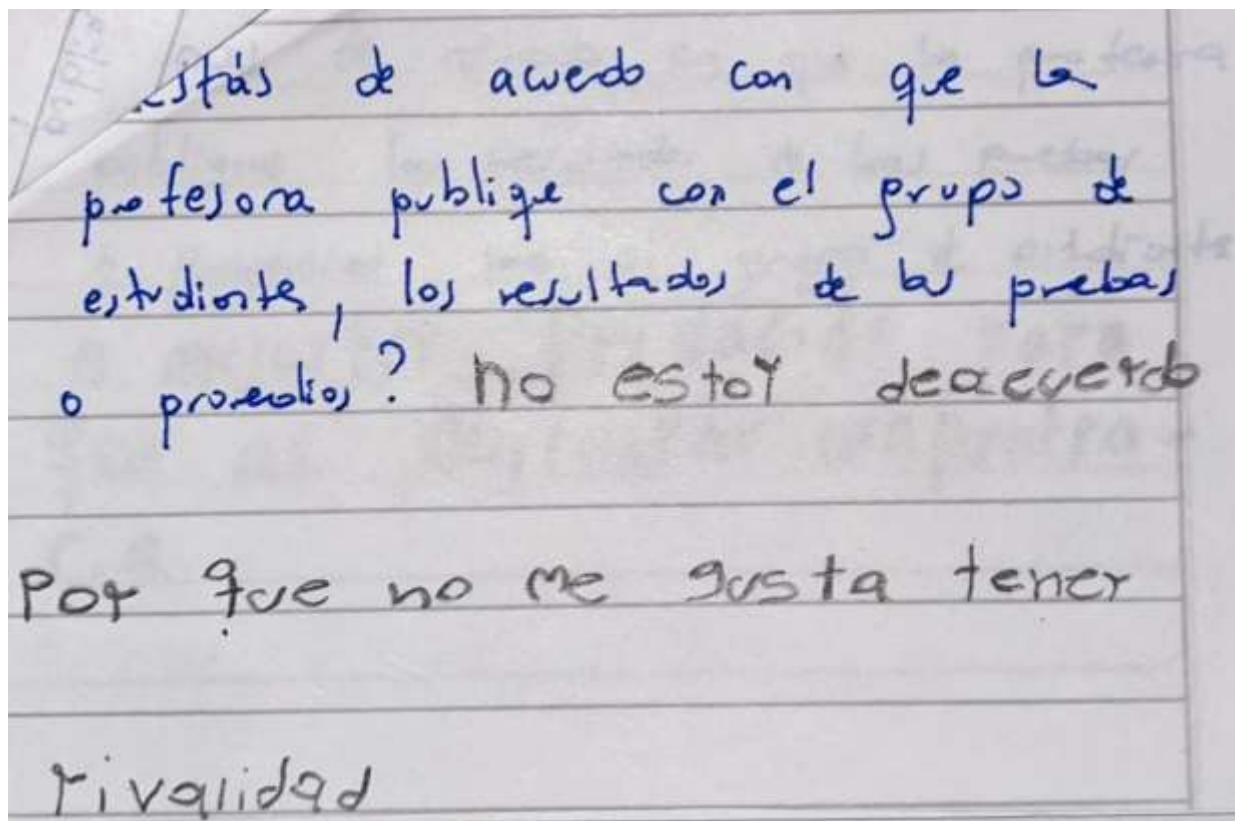 estás de acuerdo con que la
profesora publique con el grupo de
estudiantes, los resultados de las pruebas
o promedios? no estoy deacuerdo
Por que no me gusta tener
rivalidad